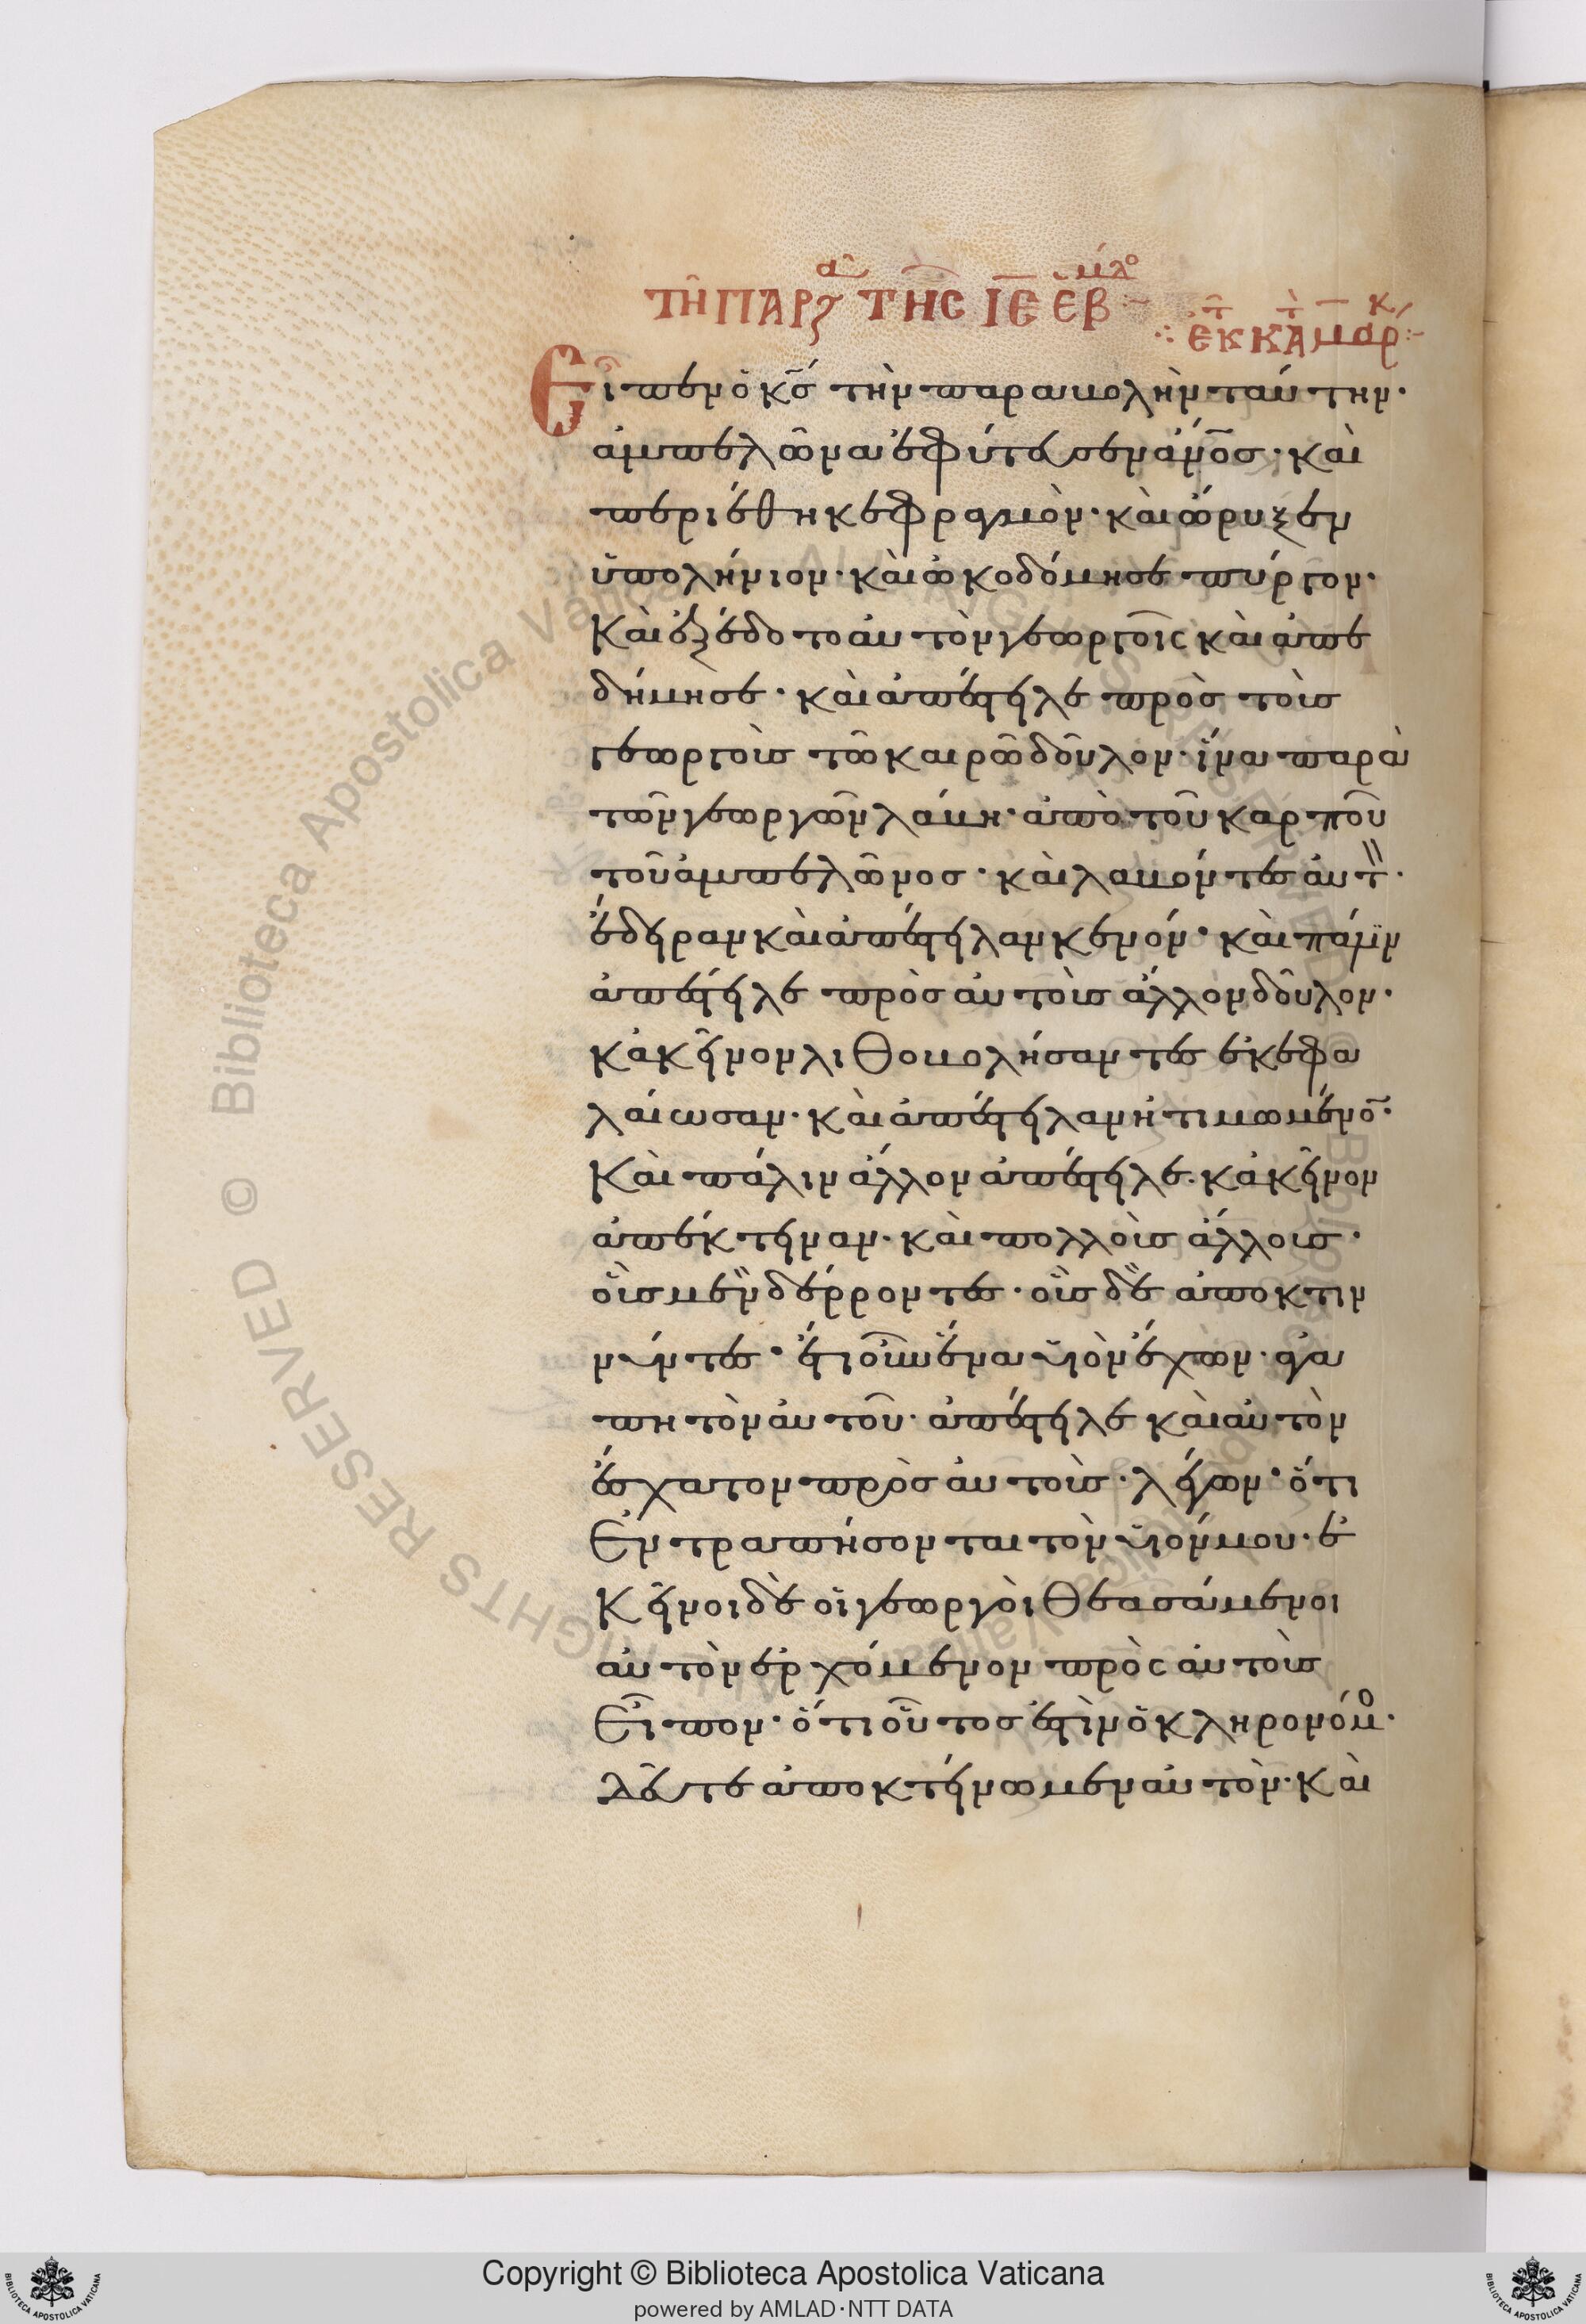 ΤΗ ΠΑΡς ΤΗς ΙΕ ΕΒ
ἐκ κατὰ μαρκ
Εἶπεν ὁ κς τὴν παραβολὴν ταύτην·
ἀμπελῶνα ἐφύτευσεν ἀνος· καὶ
περιέθηκε φραγμὸν· καὶ ὤρυξεν
ὑπολήνιον· καὶ ὠκοδόμησε πύργον·
Καὶ ἐξέδοτο αὐτὸν γεωργοῖς καὶ ἀπε
δήμησε· καὶ ἀπέστειλε πρὸς τοὺς
γεωργοὺς τῶ καιρῶ δοῦλον· ἵνα παρὰ
τῶν γεωργῶν λάβη· ἀπὸ τοῦ καρποῦ
τοῦ ἀμπελῶνος· καὶ λαβόντες αὐτ·
ἔδειραν καὶ ἀπέστειλαν κενόν· καὶ πάλιν
ἀπέστειλε πρὸς αὐτοὺς ἄλλον δοῦλον·
κἀκεῖνον λιθοβολήσαντες ἐκεφα
λαίωσαν· καὶ ἀπέστειλαν ἠτιμωμένο·
Καὶ πάλιν ἄλλον ἀπέστειλε· κἀκεῖνον
ἀπέκτειναν· καὶ πολλοὺς ἄλλους·
οὓς μὲν δέρροντες· οὓς δὲ ἀποκτιν
νύντες· ἔτι οὖν ἕνα υἱὸν ἔχων· ἀγα
πητὸν αὐτοῦ· ἀπέστειλε καὶ αὐτὸν
ἔσχατον πρὸς αὐτοὺς· λέγων· ὅτι
Ἐντραπήσονται τὸν υἱόν μου· ἐ
Κεῖνοι δὲ οἱ γεωργοὶ θεασάμενοι
αὐτὸν ἐρχόμενον πρὸς αὐτοὺς
Εἶπον· ὅτι οὗτος ἐστὶν ὁ κληρονόμο·
δεῦτε ἀποκτείνωμεν αὐτὸν· Καὶ
© Biblioteca Apostolica Vaticana
RIGHTS RESERVED
Copyright © Biblioteca Apostolica Vaticana
powered by AMLAD·NTT DATA
BIBLIOTECA APOSTOLICA VATICANA
BIBLIOTECA APOSTOLICA VATICANA